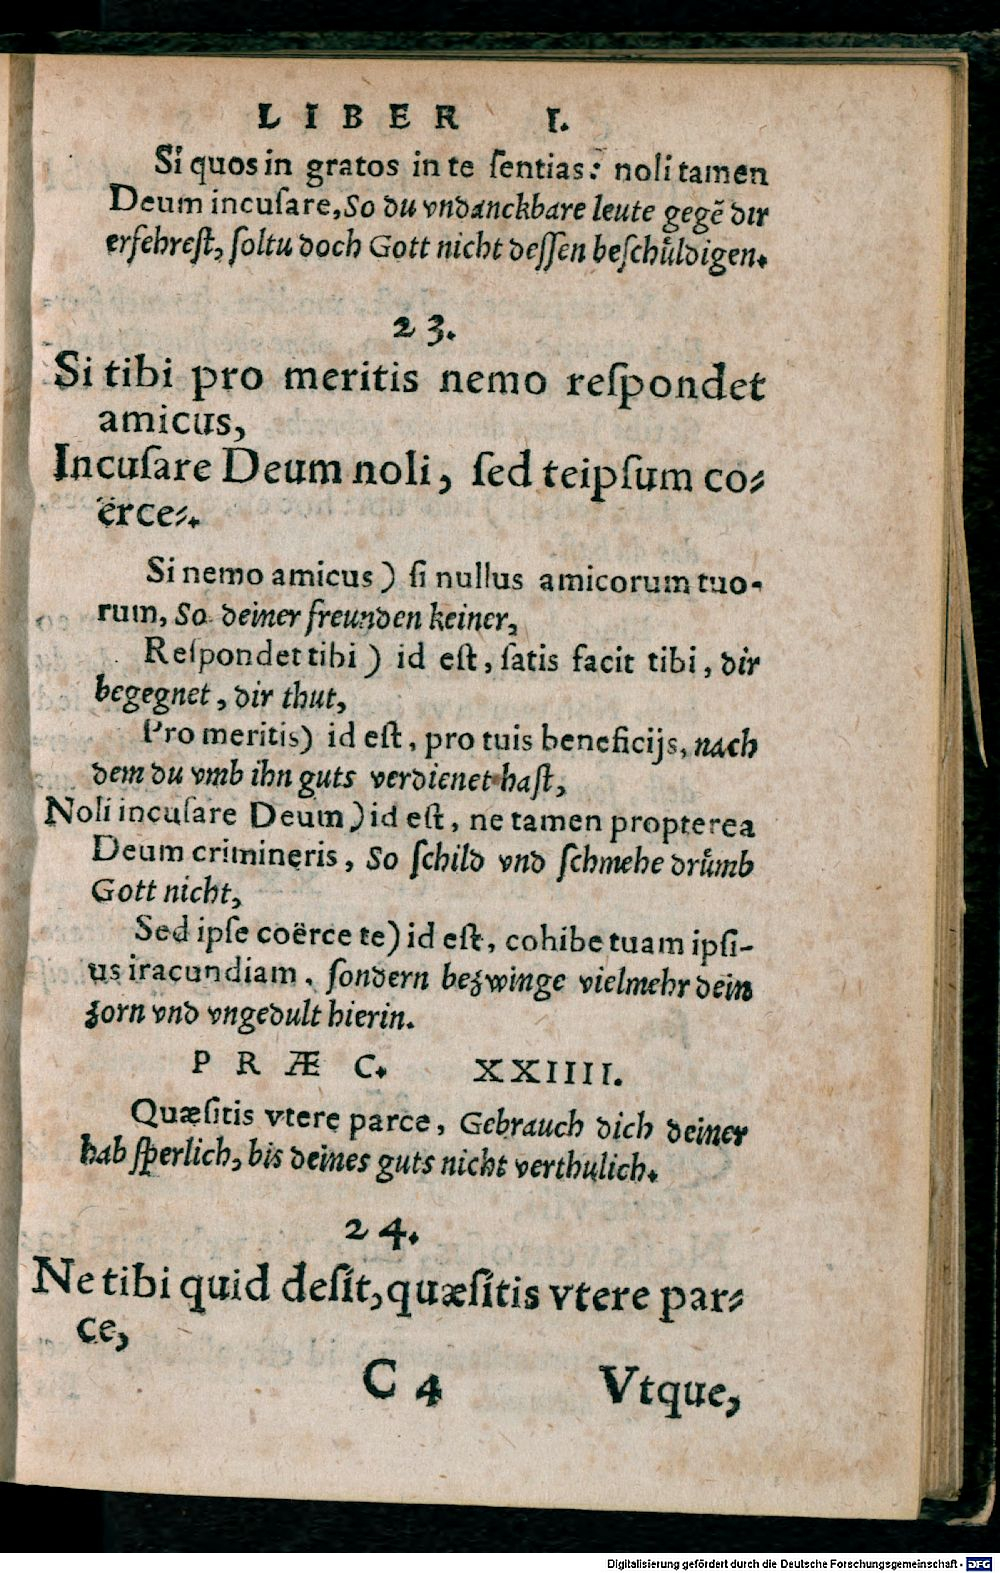 LIBER I.
Si quos in gratos in te ſentias: noli tamen
Deum incuſare, So du vndanckbare leute gegē dir
erfehreſt, ſoltu doch Gott nicht deſſen beſchuͤldigen.
23.
Si tibi pro meritis nemo reſpondet
amicus,
Incuſare Deum noli, ſed teipſum co-
ërce.
Si nemo amicus) ſi nullus amicorum tuo-
rum, So deiner freunden keiner,
Reſpondet tibi) id eſt, ſatis facit tibi, dir
begegnet, dir thut,
Pro meritis) id eſt, pro tuis beneficijs, nach
dem du vmb ihn guts verdienet haſt,
Noli incuſare Deum) id eſt, ne tamen propterea
Deum crimineris, So ſchild vnd ſchmehe druͤmb
Gott nicht,
Sed ipſe coërce te) id eſt, cohibe tuam ipſi-
us iracundiam, ſondern bezwinge vielmehr dein
zorn vnd vngedult hierin.
PRÆC. XXIIII.
Quæſitis vtere parce, Gebrauch dich deiner
hab ſperlich, bis deines guts nicht verthulich.
24.
Ne tibi quid deſit, quæſitis vtere par-
ce,
C 4 Vtque,
Digitalisierung gefördert durch die Deutsche Forschungsgemeinschaft - DFG